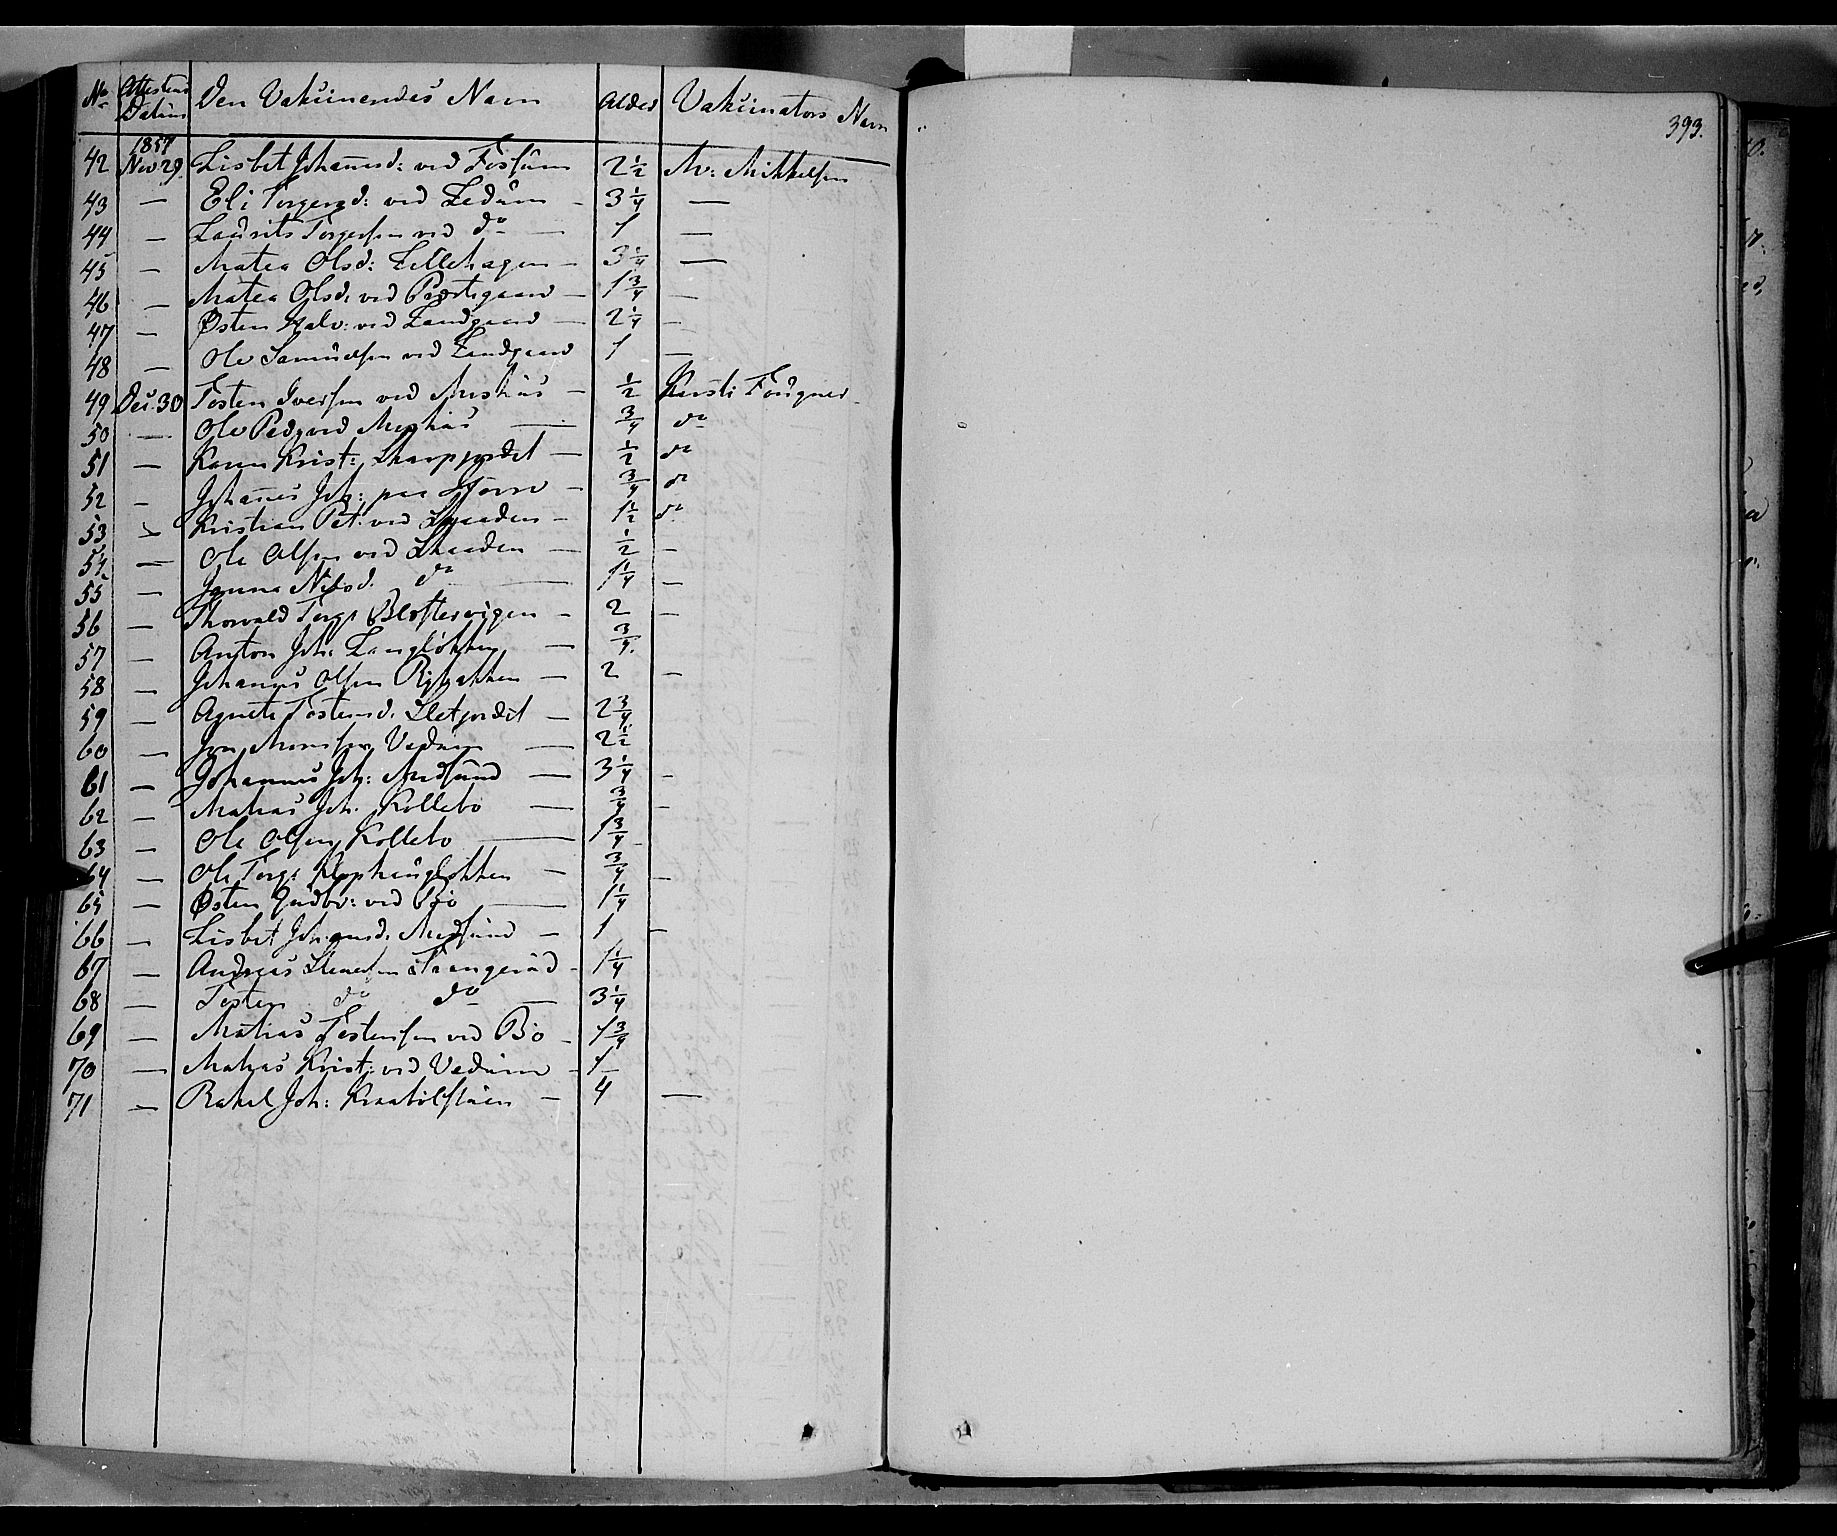 No Attestens Datum Den Vakcineredes Navn Alder Vakcinators Navn
1857
42 Nov 29. Lisbet Johannesd: ved Fossum 2½ M: Mikkelsen
43 — Eli Torgersd: ved Ledum — 3¼ —
44 — Laurits Torgersen ved do — 1 —
45 — Matea Olsd: Lillehagen — 3¼ —
46 — Matea Olsd: ved Prestegaard — 1¾ —
47 — Østen Halv: ved Landgaard — 2¼ —
48 — Ole Samuelsen ved Landgaard 1 —
49 Dec. 30 Tosten Iversen ved — ½ Kersti Fougner
50 — Ole Ped: ved — ¾ do
51 — Karen Krist: Skarpjordet — ½ do
52 — Johanes Joh: paa — ¾ do
53 — Kristian Pet: ved Skaaden — 1½ do
54 — Ole Olsen ved Skaaden — ½ —
55 — Nilsd. do — 1¼ —
56 — Thorvald Torg: Blostervigen — 2 —
57 — Anton Joh: Langløkken — ¾
58 — Johannes Olsen — 2 —
59 — Agnete Tostensd. Sletjordet — 2¾
60 — Jon Monsen Vedum — 2½
61 — Johannes Joh: Midsund — 3¼ —
62 — Matias Joh. Kollebo — ¾ —
63 — Ole Olsen Kollebo — 1¾
64 — Ole Torg: Klophaugløkken — ¾ —
65 — Østen Gudbr: ved Bø — 1¼
66 — Lisbet Johannesd. Midsund — 1 —
67 — Andreas Stenersen Trangerud — 1¼
68 — Tosten do do — 3¼
69 — Matias Tostensen ved Bø — 1¾
70 — Matias Krist: ved Vedum — 1
71 — Rakel Joh: — 4 —
393.